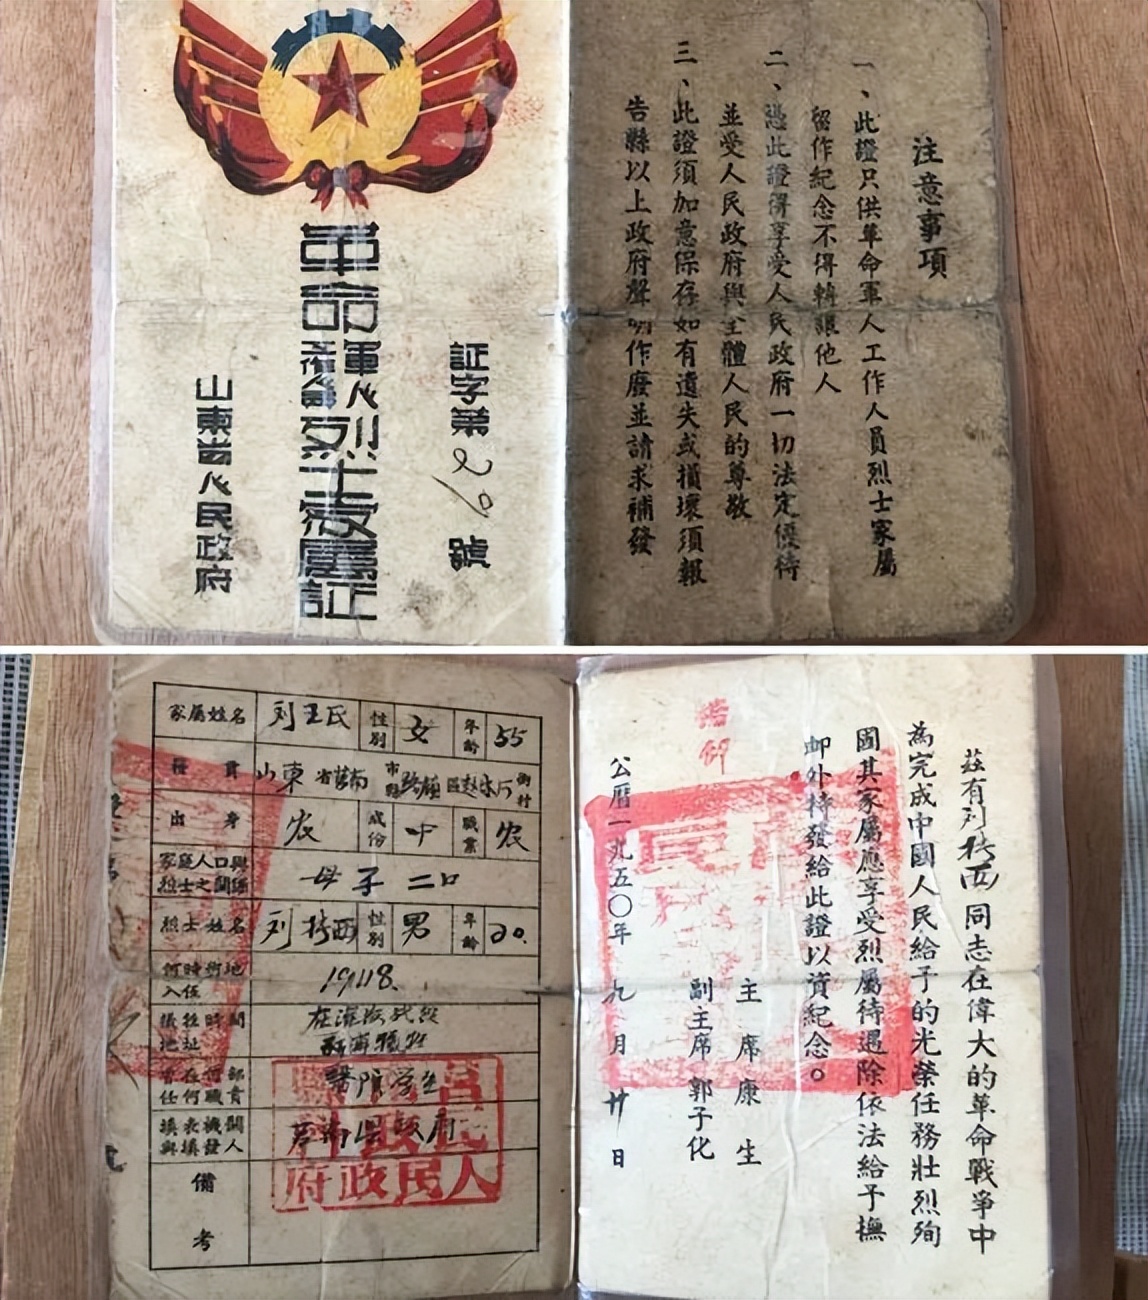 証字第29號
革命軍人烈士家屬証
山東省人民政府
注意事項
一、此證只供革命軍人工作人員烈士家屬
留作紀念不得轉讓他人
二、憑此證得享受人民政府一切法定優待
並受人民政府與全體人民的尊敬
三、此證須加意保存如有遺失或損壞須報
告縣以上政府聲明作廢並請求補發
家屬姓名 刘王氏 性別 女 年齡 55
籍貫 山東省莒南市縣 區 街村
出身 农 成份 中 職業 农
家庭人口與烈士之關係 母子二口
烈士姓名 刘 西 性別 男 年齡 20.
何時何地入伍 1948.
犧牲時間地址 在淮海战役
曾在何部任何職責 醫院学生
填表機關與填發人 莒南县政府
人民政府
備考
茲有刘 西同志在偉大的革命戰爭中
為完成中國人民給予的光榮任務壯烈殉
國其家屬應享受烈屬待遇除依法給予撫
卹外特發給此證以資紀念。
主席康生
副主席郭子化
公曆一九五〇年九月廿日